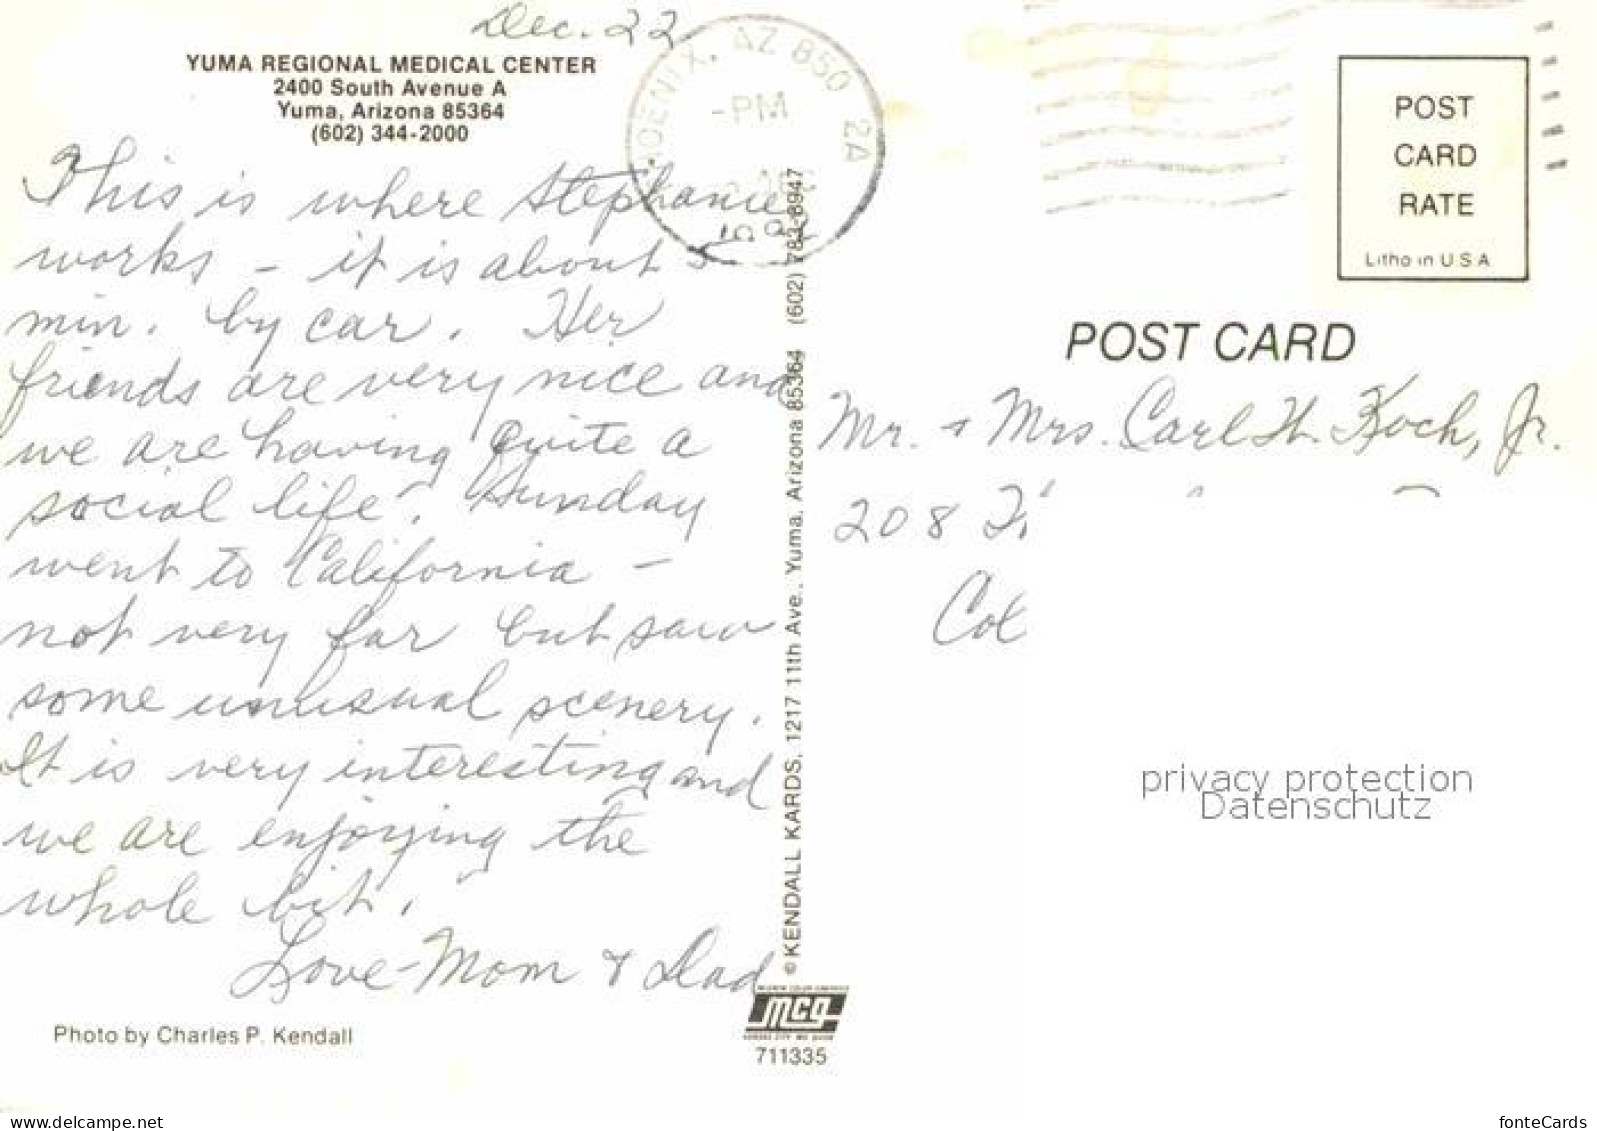 Dec. 22
YUMA REGIONAL MEDICAL CENTER
2400 South Avenue A
Yuma, Arizona 85364
(602) 344-2000
This is where Stephanie
works - it is about 5
min. by car. Her
friends are very nice and
we are having quite a
social life. Sunday
went to California -
not very far but saw
some unusual scenery.
It is very interesting and
we are enjoying the
whole bit.
Love - Mom & Dad
Photo by Charles P. Kendall
© KENDALL KARDS, 1217 11th Ave., Yuma, Arizona 85364 (602) 783-8947
mcg
711335
PHOENIX, AZ 850 2A
-PM
POST
CARD
RATE
Litho in U S A
POST CARD
Mr. + Mrs. Carl H. Koch, Jr.
208
Col
privacy protection
Datenschutz
https://www.delcampe.net
fonteCards